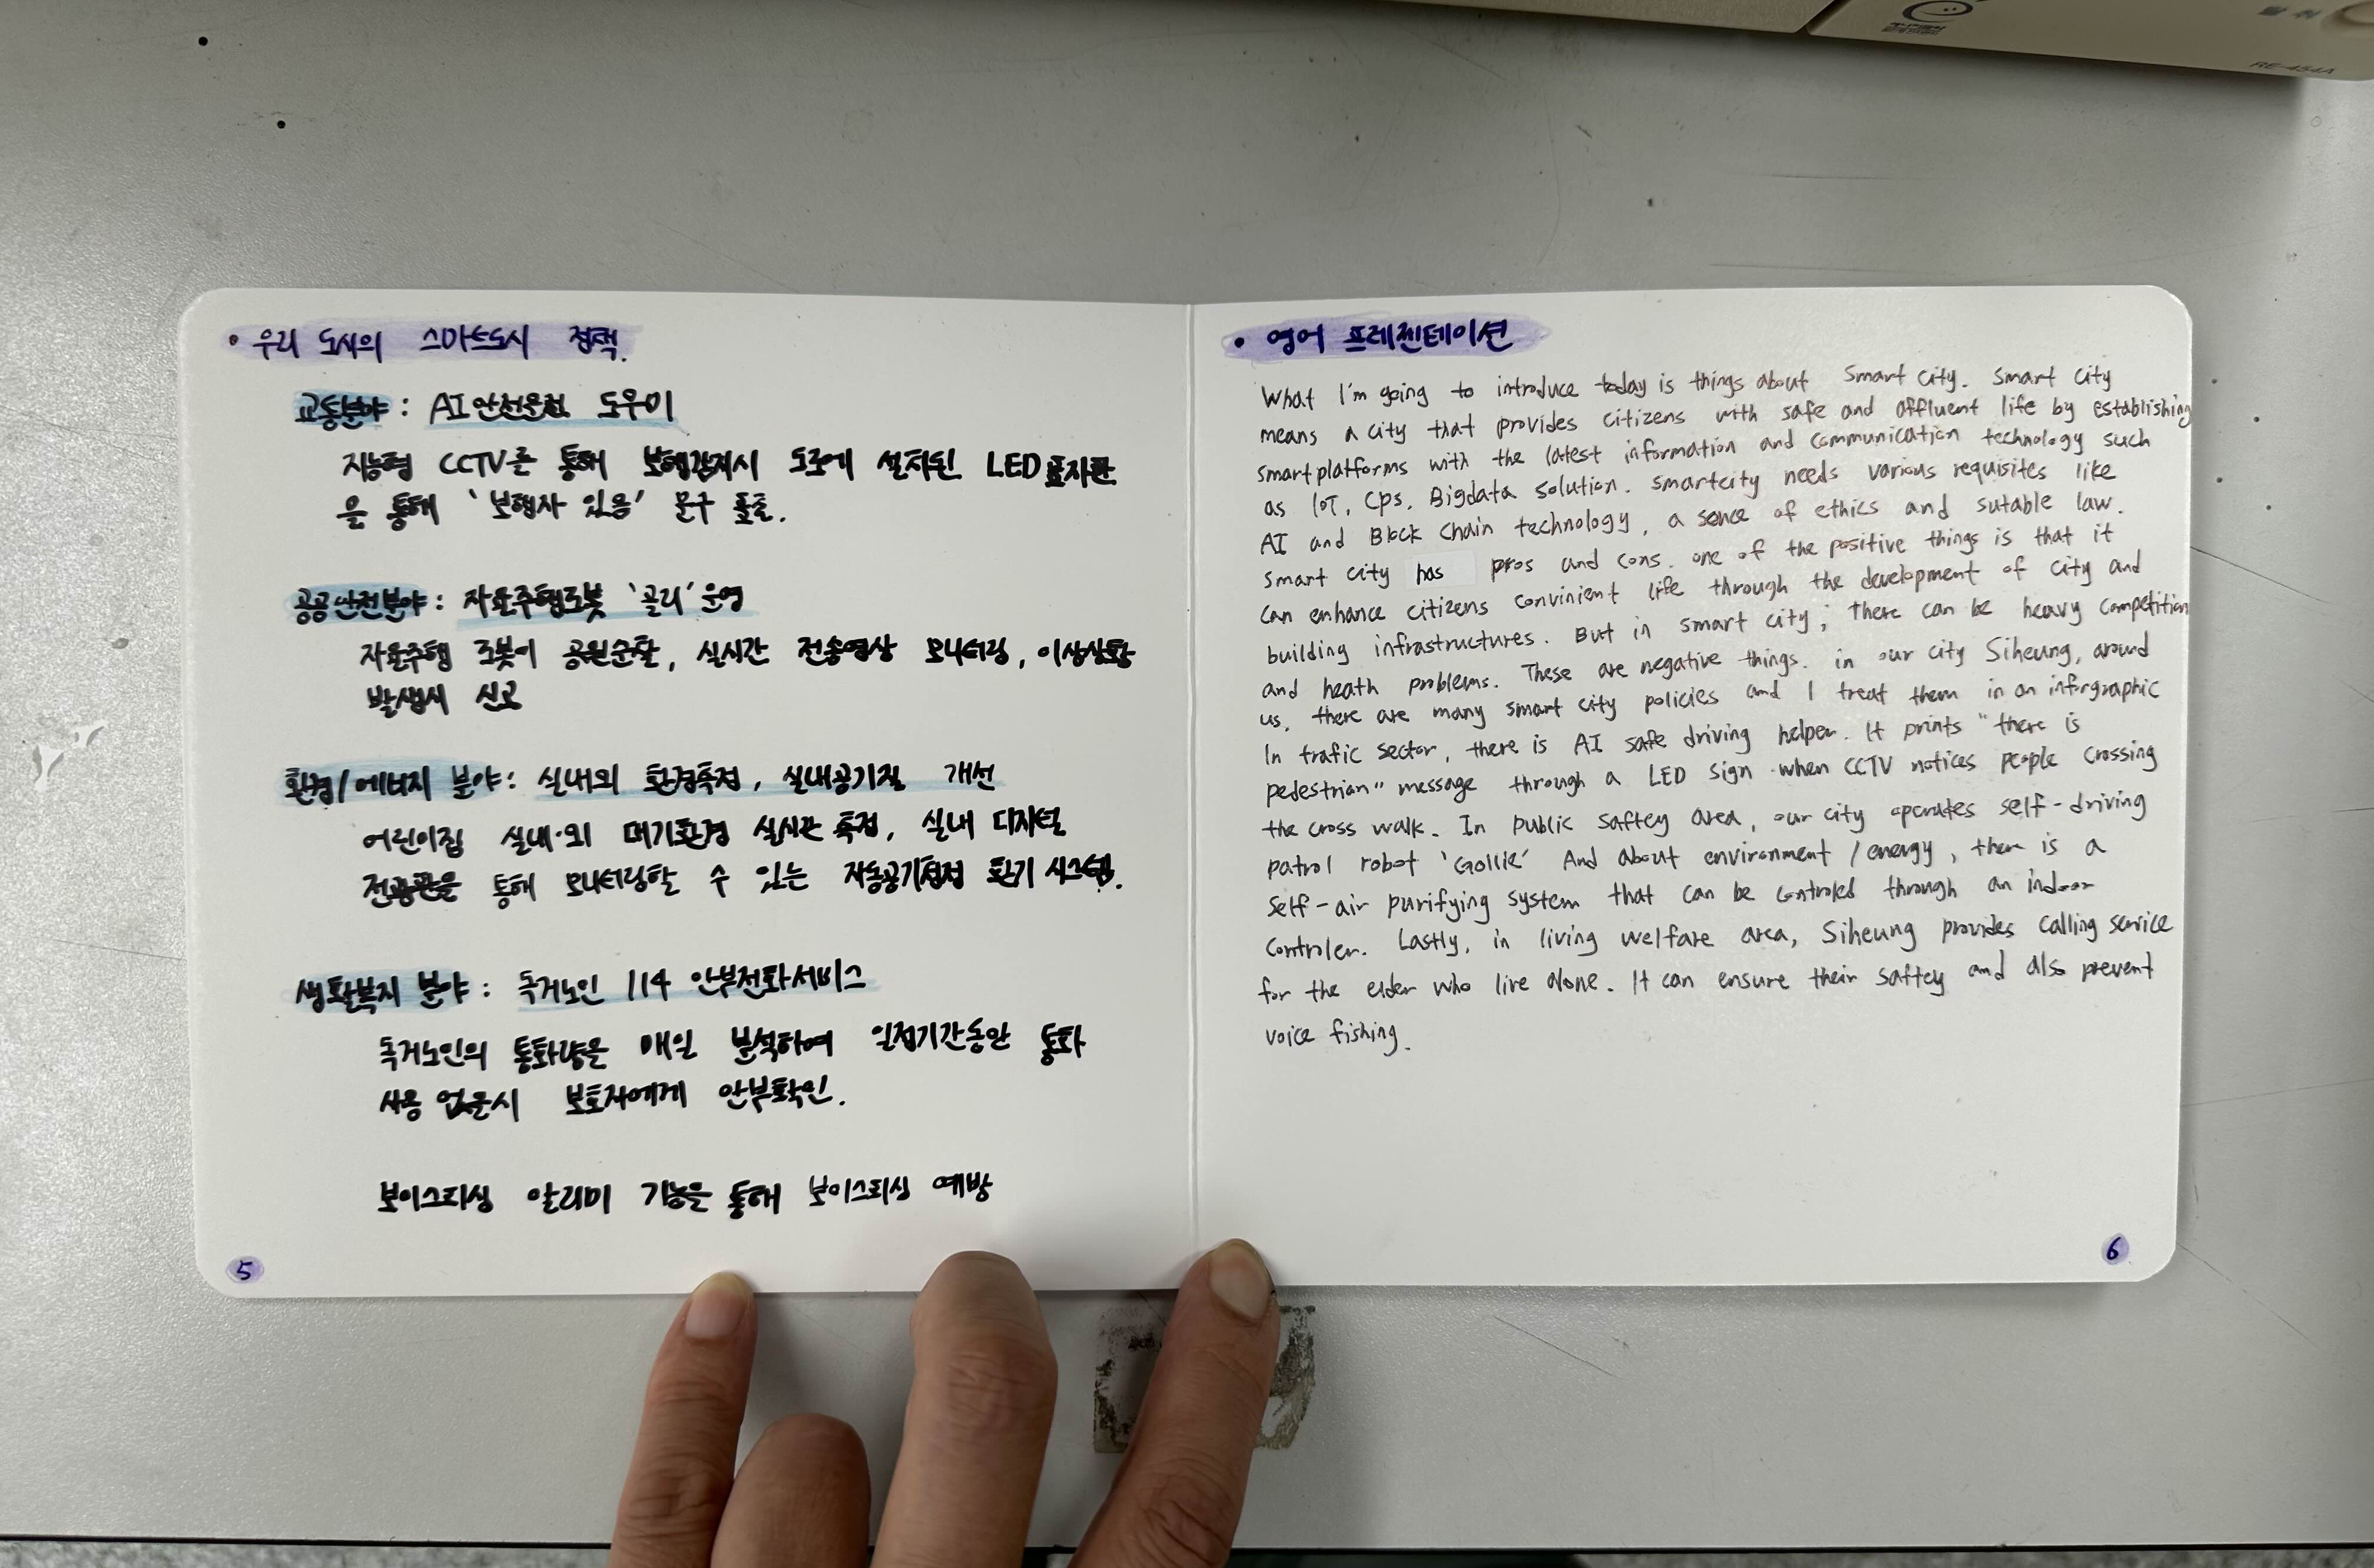 • 우리 도시의 스마트도시 정책.
교통분야 : AI안전운전 도우미
지능형 CCTV를 통해 보행감지시 도로에 설치된 LED표지판
을 통해 '보행자 있음' 문구 표출.
공공안전분야 : 자율주행로봇 '골리' 운영
자율주행 로봇이 공원순찰, 실시간 전송영상 모니터링, 이상상황
발생시 신고
환경/에너지 분야 : 실내외 환경측정, 실내공기질 개선
어린이집 실내·외 대기환경 실시간 측정, 실내 디지털
전광판을 통해 모니터링할 수 있는 자동공기청정 환기 시스템.
생활복지 분야 : 독거노인 114 안부전화서비스
독거노인의 통화량을 매일 분석하여 일정기간동안 통화
사용 없을시 보호자에게 안부확인.
보이스피싱 알리미 기능을 통해 보이스피싱 예방
5
• 영어 프레젠테이션
What I'm going to introduce today is things about Smart city. Smart city
means a city that provides citizens with safe and affluent life by establishing
smart platforms with the latest information and communication technology such
as IoT, Cps, Bigdata solution. smartcity needs various requisites like
AI and Block Chain technology, a sence of ethics and sutable law.
Smart city has pros and cons. one of the positive things is that it
can enhance citizens convinient life through the development of city and
building infrastructures. But in smart city, There can be heavy competition
and heath problems. These are negative things. in our city Siheung, around
us, there are many smart city policies and I treat them in an inforgraphic
In trafic sector, there is AI safe driving helper. It prints "there is
pedestrian" message through a LED sign when CCTV notices people crossing
the cross walk. In public saftey area, our city operates self-driving
patrol robot 'Gollie' And about environment / energy, there is a
self-air purifying system that can be controled through an indoor
controler. Lastly, in living welfare area, Siheung provides calling service
for the elder who live alone. It can ensure their saftey and also prevent
voice fishing.
6
RE-454A